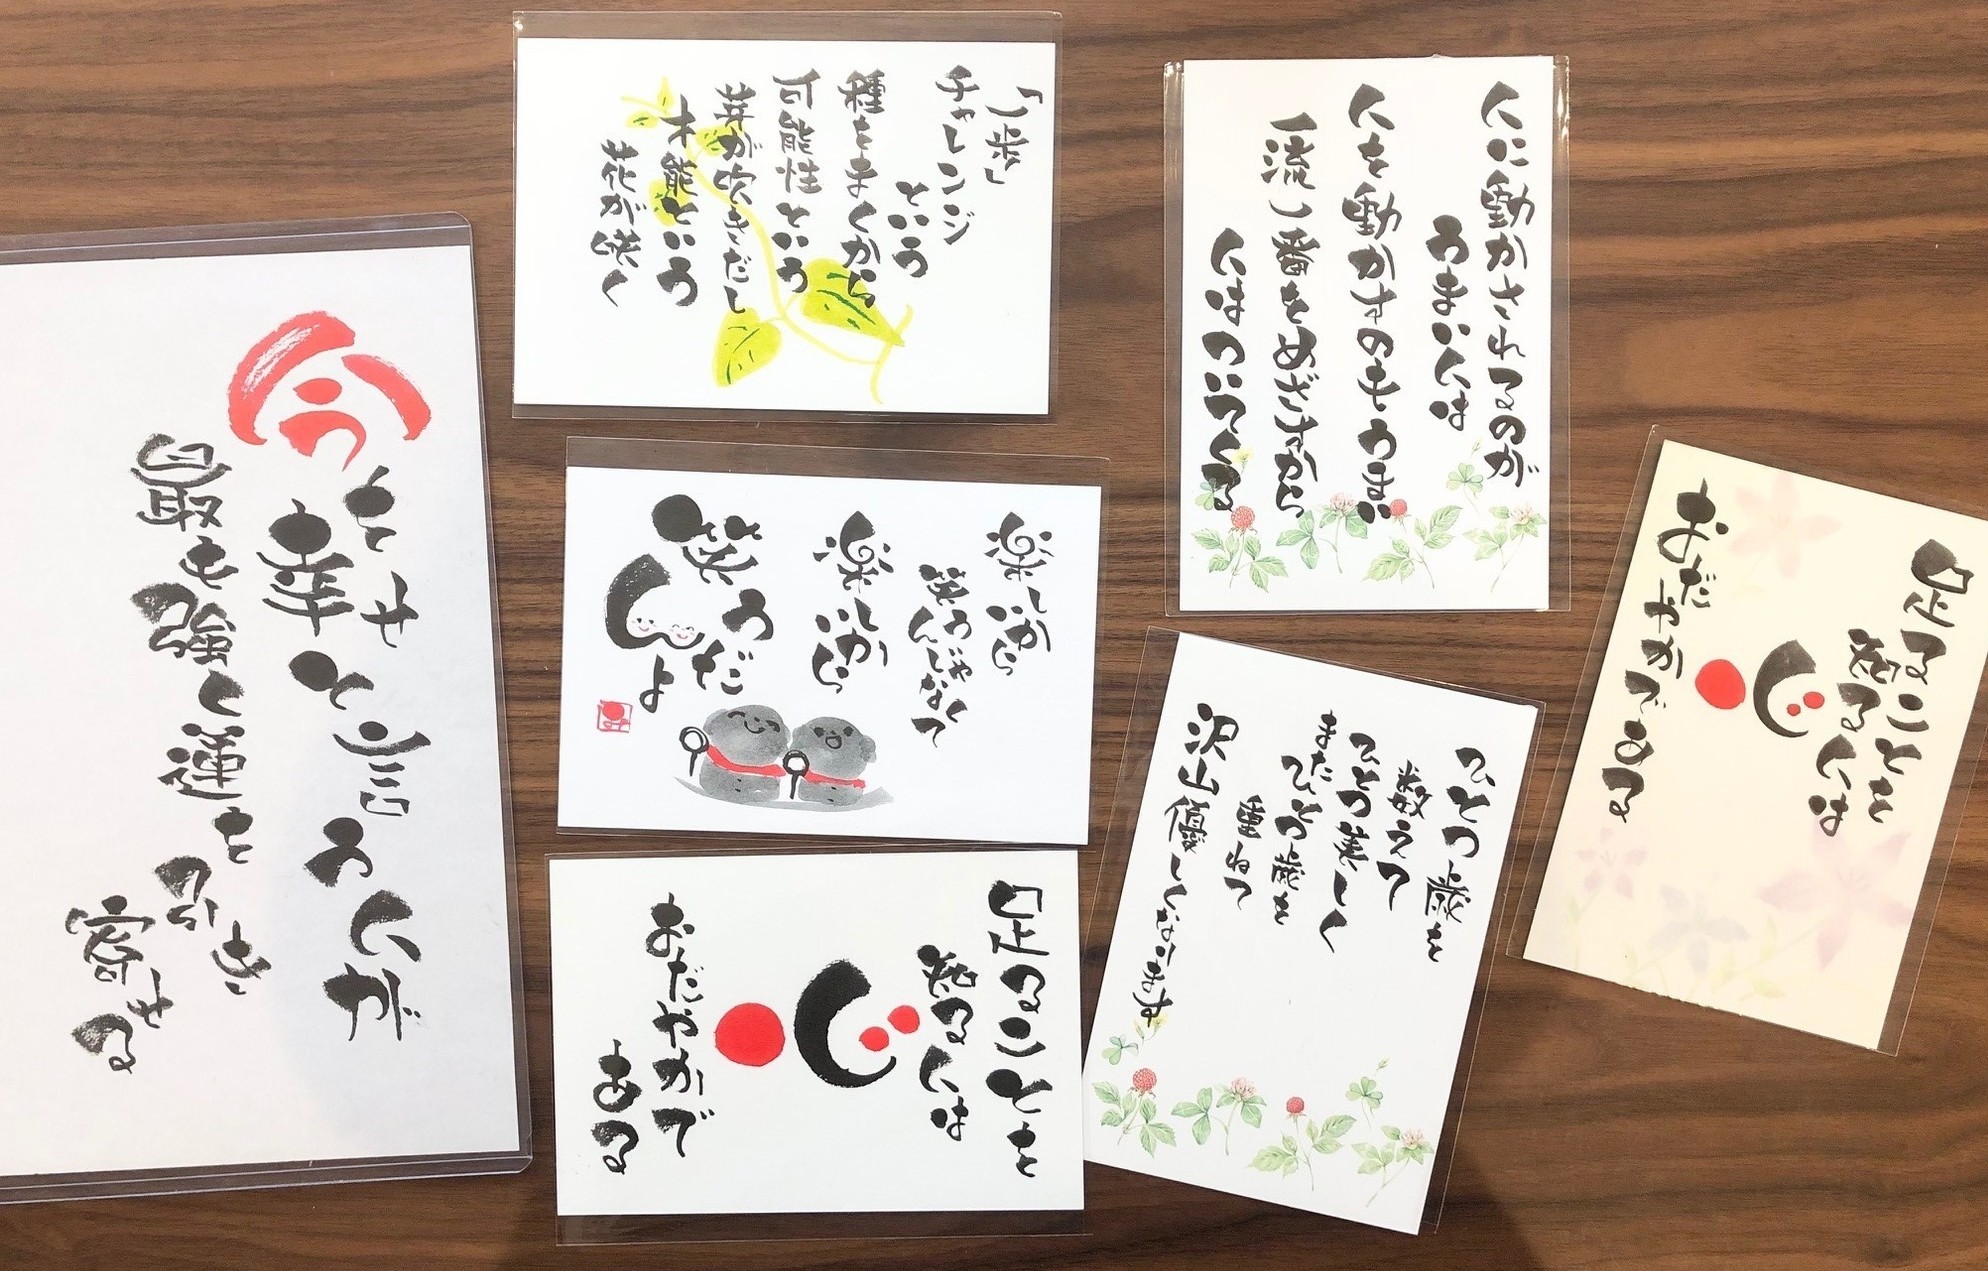 今を幸せと言う人が
最も強く運を引き寄せる
「一歩」
チャレンジ
という
種をまくから
可能性という
芽が吹きだし
才能という
花が咲く
楽しいから
笑うんじゃなくて
楽しいから
笑うんだよ
足ることを
知る人は
心
おだやかで
ある
人に動かされるのが
うまい人は
人を動かすのもうまい
一流一番をめざすから
人はついてくる
ひとつ歳を
数えて
ひとつ美しく
またひとつ歳を
重ねて
沢山優しくなります
足ることを
知る人は
心
おだやかである